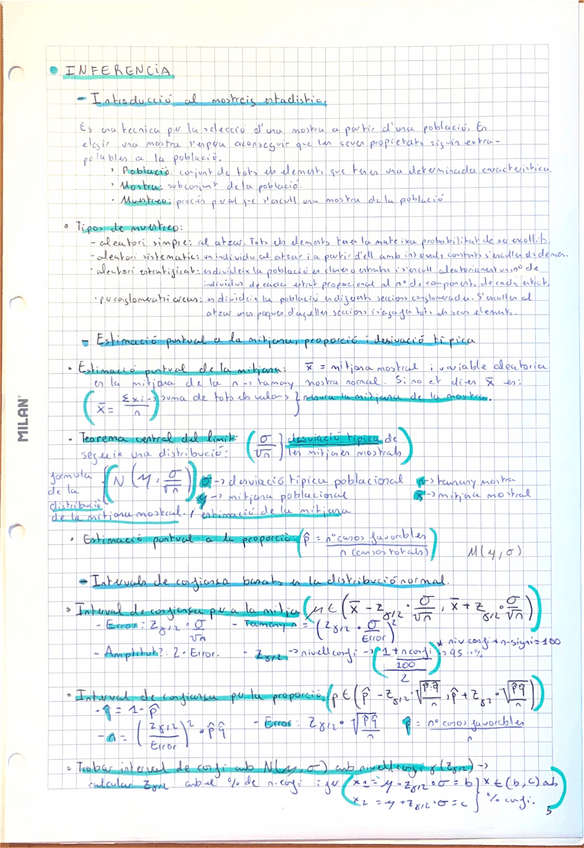 INFERENCIA.
- Introducció al mostreig estadístic.
Es una tecnica per la selecció d'una mostra a partir d'una població. En
elegir una mostra s'espera aconseguir que les seves propietats siguin extra-
polables a la població.
› Població: conjunt de tots els elements que tenen una determinada característica.
› Mostra: subconjunt de la població.
· Muestreo: procés pel qual s'escull una mostra de la població
• Tipos de muestreo:
- aleatori simple: al atzar. Tots els elements tenen la mateixa probabilitat de ser escollits.
- aleatori sistematic: un individu al atzar i a partir d'ell amb intervals constants s'escullen els demes.
- aleatori estratificat: es divideix la població en clases o estrats i s'escull aleatoriament un nº de
individus de cada estrat proporcional al nº de components de cada estrat.
· per es divideix la població en diferents seccions conglomerades. S'escullen al
atzar unes poques d'aquelles seccions i s'agafa tots els seus elements.
- Estimació puntual a la mitjana, proporció i desviació típica
• Estimació puntual de la mitjana: x̅ = mitjana mostral i variable aleatoria
es la mitjana de la n → tamany mostra normal. Si no et diuen x̅ es:
(x̅ = Σxi/n) → suma de tots els valors } només la mitjana de la mostra.
• Teorema central del limit: (σ/√n) desviació típica de
segueix una distribució: les mitjanes mostrals
formula de la distribució de la mitjana mostral. / estimació de la mitjana
(N(μ, σ/√n)) σ → desviació típica poblacional n → tamany mostra
μ → mitjana poblacional x̅ → mitjana mostral
• Estimació puntual a la proporció (p̂ = nº casos favorables / n (casos totals)) N(μ, σ)
- Intervals de confiança basats en la distribució normal.
• Interval de confiança per a la mitja (μ ∈ (x̅ - Zα/2 · σ/√n, x̅ + Zα/2 · σ/√n))
- Error: Zα/2 · σ/√n - Tamany n = (Zα/2 · σ / Error)²
* niv confi + n·signi = 100
- Amplitut?: 2 · Error. - Zα/2 → nivell confi → (1 + n confi/100 / 2) → 95%
• Interval de confiança per la proporció (p ∈ (p̂ - Zα/2 · √p̂q̂/n, p̂ + Zα/2 · √p̂q̂/n))
- q̂ = 1 - p̂
- n = (Zα/2 / Error)² · p̂q̂ - Error: Zα/2 · √p̂q̂/n p̂ = nº casos favorables / n
• Trobar interval de confi amb N(μ, σ) amb nivell confi γ(Zα/2) →
calcular Zα/2 amb el % de n·confi i fer (x₁ = μ - Zα/2 · σ = b } x ∈ (b, c) amb
x₂ = μ + Zα/2 · σ = c } % confi.
5
MILAN